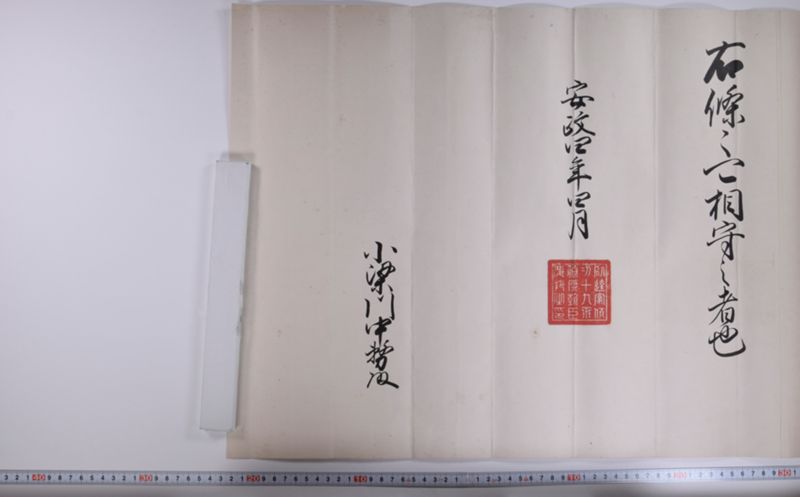 右條々宜相守之者也
安政四年四月
小梁川中務殿